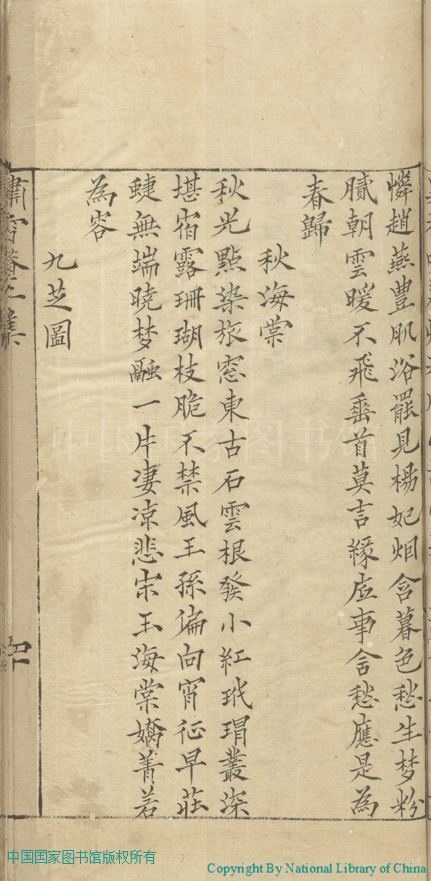 憐趙燕豊肌浴罷見楊妃烟含暮色愁生梦粉
膩朝雲暖不飛垂首莫言緣底事含愁應是為
春歸
秋海棠
秋光點染旅窓東古石雲根發小紅玳瑁叢深
堪宿露珊瑚枝脆不禁風王孫偏向宵征早莊
蜨無端曉梦融一片凄凉悲宋玉海棠嬌菁若
為容
九芝圖
中国国家图书馆
中国国家图书馆版权所有
Copyright By National Library of China